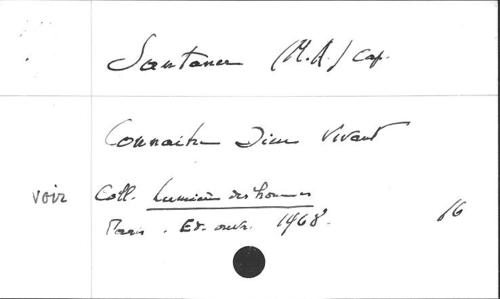 Santaner (M.A.) Cap.
Connaitre Dieu Vivant
voir Coll. Lumière des hommes
Paris. Ed. ouvr. 1968. 16